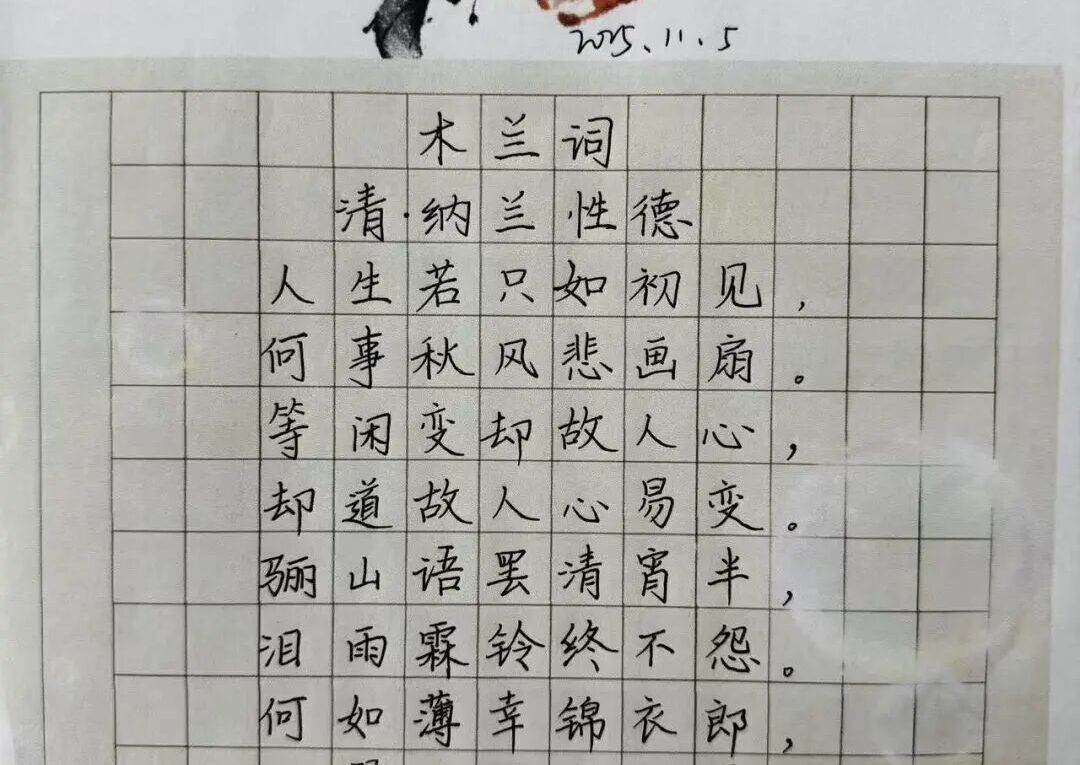 2025.11.5
木兰词
清·纳兰性德
人生若只如初见，
何事秋风悲画扇。
等闲变却故人心，
却道故人心易变。
骊山语罢清宵半，
泪雨霖铃终不怨。
何如薄幸锦衣郎，